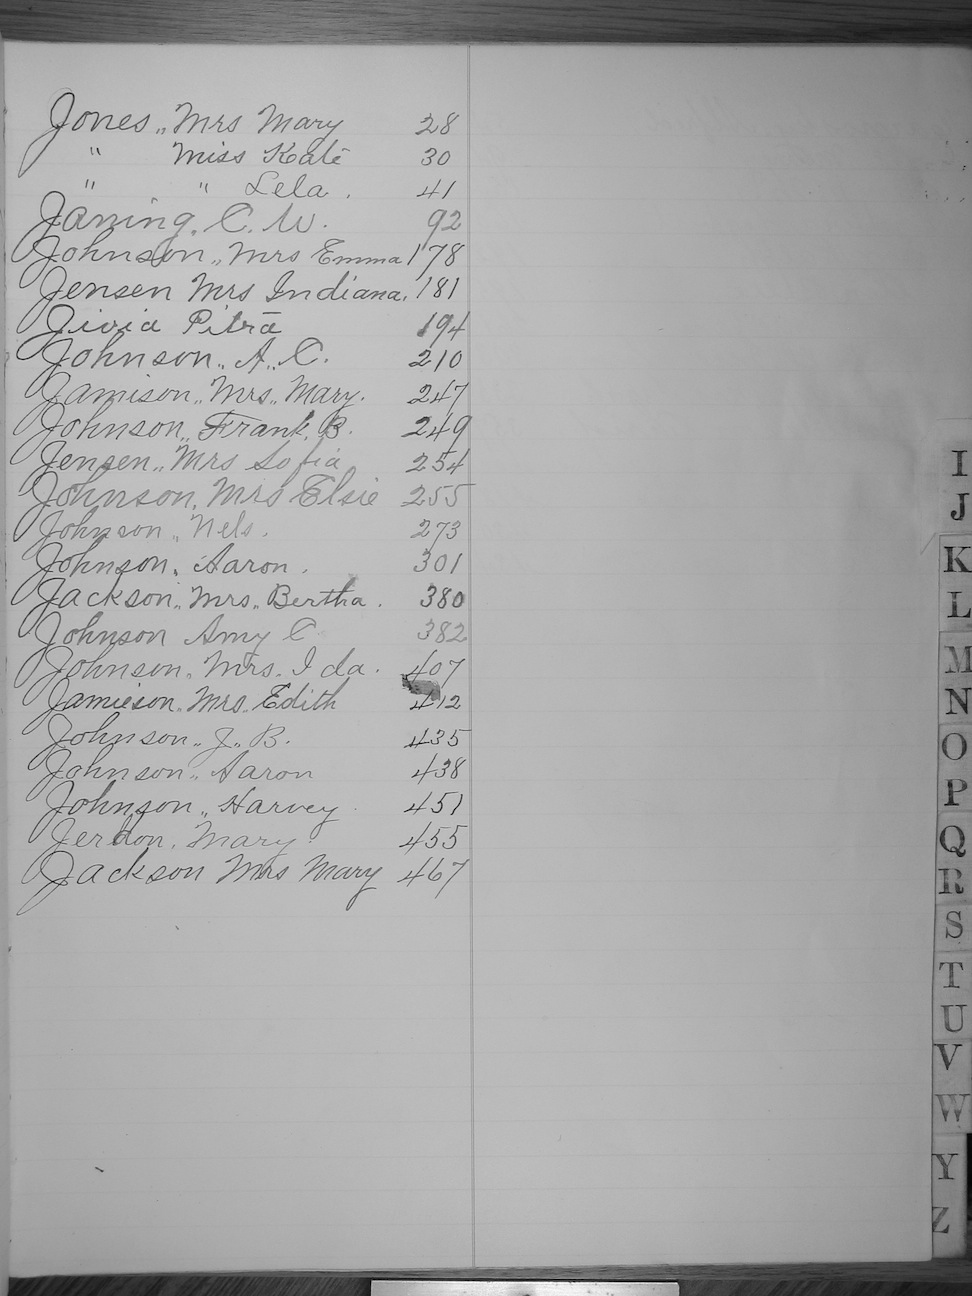 Jones,, Mrs Mary 28
" Miss Kate 30
" " Lela. 41
Janing, C. W. 92
Johnson,, Mrs Emma 178
Jensen Mrs Indiana, 181
Jivia Pitra 194
Johnson,, A,, C. 210
Jamison,, Mrs,, Mary. 247
Johnson,, Frank, B. 249
Jensen,, Mrs Sofia 254
Johnson, Mrs Elsie 255
Johnson,, Nels. 273
Johnson, Aaron. 301
Jackson,, Mrs,, Bertha. 380
Johnson Amy C 382
Johnson, Mrs. Ida. 407
Jamieson,, Mrs,, Edith 412
Johnson,, J,, B. 435
Johnson,, Aaron 438
Johnson,, Harvey. 451
Jerdon, Mary 455
Jackson Mrs Mary 467
I
J
K
L
M
N
O
P
Q
R
S
T
U
V
W
Y
Z